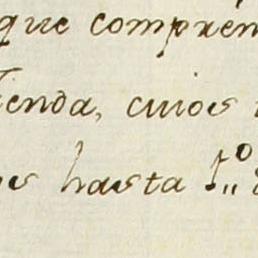 que comprén
ienda, cuios
es hasta